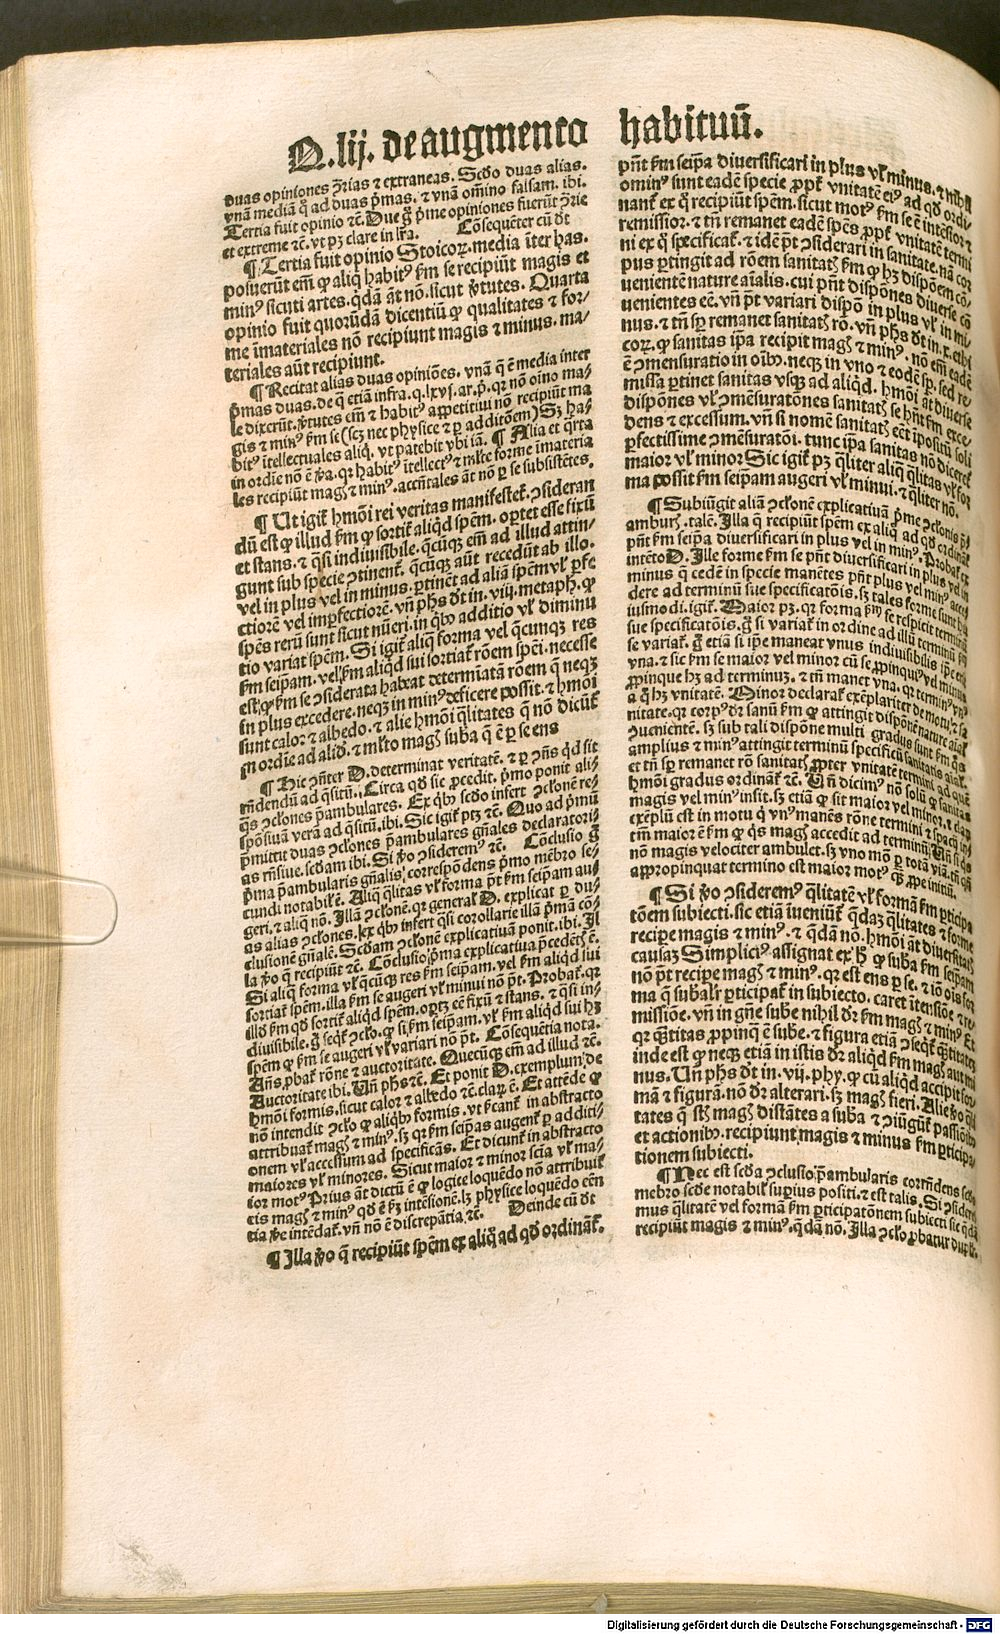 Q. lij. de augmento habituū.
duas opiniones ꝯ̄rias ⁊ extraneas. Scd̄o duas alias.
vnā mediā ꝙ̄ ad duas p̄mas. ⁊ vnā om̄ino falsam. ibi.
Tertia fuit opinio ⁊c̄. Due ḡ p̄me opiniones fuerūt ꝯ̄rie
et extreme ⁊c̄. vt pꝫ clare in lr̄a. Cōsequēter cū dt̄
¶ Tertia fuit opinio Stoicoꝝ. media īter has.
posuerūt em̄ ꝙ aliq̄ habitꝰ ẜm se recipiūt magis et
minꝰ sicuti artes. q̄dā āt nō. sicut v̄tutes. Quarta
opinio fuit quorūdā dicentiū ꝙ qualitates ⁊ for/
me īmateriales nō recipiunt magis ⁊ minus. ma/
teriales aūt recipiunt.
¶ Recitat alias duas opiniōes. vnā q̄ ē media inter
p̄mas duas. de q̄ etiā infra. q. lxvj. ar. p̄. qꝛ nō oīno ma/
le dixerūt. v̄tutes em̄ ⁊ habitꝰ appetitiui nō recipiūt ma
gis ⁊ minꝰ ẜm se (scꝫ nec physice ⁊ ꝑ additōem) Sꝫ ha/
bitꝰ ītellectuales aliq̄. vt patebit vbi iā. ¶ Alia et q̄rta
in ordīe nō ē v̄a. qꝛ habitꝰ ītellectꝰ ⁊ ml̄te forme īmateria
les recipiūt magꝭ ⁊ minꝰ. accn̄tales āt nō ꝑ se subsistētes.
¶ Ut igit̄ hmōi rei veritas manifestet̄. ꝯsideran
dū est ꝙ illud ẜm qd̄ sortit̄ aliqd̄ spēm. oꝑtet esse fixū
et stans. ⁊ q̄si indiuisibile. q̄cūqꝫ em̄ ad illud attin/
gunt sub specie ꝯtinent̄. q̄cūqꝫ aūt recedūt ab illo.
vel in plus vel in minus. ꝑtinēt ad aliā spēm vl̓ ꝑfe
ctiorē vel imꝑfectiorē. vn̄ ph̄s dt̄ in. viij. metaph̄. ꝙ
spēs rerū sunt sicut nūeri. in q̄bꝫ additio vl̓ diminu
tio variat spēm. Si igit̄ aliq̄ forma vel q̄cunqꝫ res
ẜm seipam. vel ẜm aliqd̄ sui sortiat̄ rōem spēi. necesse
est ꝙ ẜm se ꝯsiderata habeat determīatā rōem q̄ neqꝫ
in plus excedere. neqꝫ in minꝰ deficere possit. ⁊ hmōi
sunt caloꝛ ⁊ albedo. ⁊ alie hmōi q̄litates q̄ nō dicūt̄
in ordīe ad aliđ. ⁊ ml̄to magꝭ suba q̄ ē ꝑ se ens
¶ Hic ꝯn̄ter D. determinat veritatē. ⁊ ꝑ ꝯn̄s qd̄ sit
rn̄dendū ad q̄situ. Circa qd̄ sic ꝓcedit. p̄mo ponit ali/
q̄s ꝯclones p̄ambulares. Ex q̄bꝫ scd̄o infert ꝯclonē re/
sponsiuā verā ad q̄situ. ibi. Sic igit̄ ptꝫ ⁊c̄. Quo ad p̄mū
p̄mittit duas ꝯclones p̄ambulares gn̄ales declaratori/
as rn̄siue. scd̄am ibi. Si v̄o ꝯsideremꝰ ⁊c̄. Conclusio ḡ
p̄ma p̄ambularis gn̄alis correspondens p̄mo mēbro se/
cundi notabil̓ ē. Aliq̄ q̄litas vl̓ forma pt̄ ẜm seipam au/
geri. ⁊ aliq̄ nō. Illā ꝯclonē. qꝛ general̓ D. explicat ꝑ du/
as alias ꝯclones. ex q̄bꝫ infert q̄si corollarie illā p̄mā cō/
clusionē gn̄alē. Scd̄am ꝯclonē explicatiuā ponit. ibi. Il
la v̄o q̄ recipiūt ⁊c̄. Cōclusio p̄ma explicatiua p̄cedētꝭ ē.
Si aliq̄ forma vl̓ q̄cūqꝫ res ẜm seipam. vel ẜm aliqd̄ sui
sortiat̄ spēm. illa ẜm se augeri vl̓ minui nō pt̄. Probat̄. qꝛ
illđ ẜm qd̄ sortit̄ aliqd̄ spēm. oꝑtꝫ eē fixū ⁊ stans. ⁊ q̄si in/
diuisibile. ḡ seqt̄ ꝯclo. ꝙ si ẜm seipam. vl̓ ẜm aliqd̄ sui hꝫ
spēm ꝙ ẜm se augeri vl̓ variari nō pt̄. Cōsequētia nota.
Ans̄ ꝓbat̄ rōne ⁊ auctoritate. Quecūqꝫ em̄ ad illud ⁊c̄.
Auctoritate ibi. Un̄ ph̄s ⁊c̄. Et ponit D. exemplum de
hmōi formis. sicut caloꝛ ⁊ albedo ⁊c̄. claꝝ ē. Et attēde ꝙ
nō intendit ꝯclo ꝙ aliqbꝫ formis. vt ẜcant̄ in abstracto
attribuat̄ magꝭ ⁊ minꝰ. sꝫ qꝛ ẜm seipas augent̄ ꝑ additi/
onem vl̓ accessum ad specificās. Et dicunt̄ in abstracto
maiores vl̓ minores. Sicut maior ⁊ minor scīa vl̓ ma/
ior motꝰ. Prius āt dictū ē ꝙ logice loquēdo nō attribuit̄
eis magꝭ ⁊ minꝰ qd̄ ē ẜm intēsionē. lꝫ physice loquēdo eēn
tia v̄e intēdat̄. vn̄ nō ē discrepātia ⁊c̄. Deinde cū dt̄
¶ Illa v̄o q̄ recipiūt spēm ex aliq̄ ad qd̄ ordinant̄.
pn̄t ẜm seipa diuersificari in plus vl̓ minus. ⁊ nihil
ominꝰ sunt eadē specie ꝓpt̄ vnitatē eiꝰ ad qd̄ ordi/
nant̄ ex q̄ recipiūt spēm. sicut motꝰ ẜm se ē intēsior ⁊
remissior. ⁊ tn̄ remanet eadē spēs ꝓpt̄ vnitatē termi
ni ex q̄ specificat̄. ⁊ idē pt̄ ꝯsiderari in sanitate. nā cor
pus ꝑtingit ad rōem sanitatꝭ ẜm ꝙ hꝫ dispōem cō/
uenientē nature aīalis. cui pn̄t dispōnes diuerse cō
uenientes eē. vn̄ pt̄ variari dispō in plus vl̓ in mi
nus. ⁊ tn̄ sꝑ remanet sanitatꝭ rō. vn̄ ph̄s dt̄ in. x. ethi
coꝝ. ꝙ sanitas ip̄a recipit magꝭ ⁊ minꝰ. nō em̄ eadē
ē ꝯmensuratio in oībꝫ. neqꝫ in vno ⁊ eodē sꝑ. sed re
missa ꝑtinet sanitas vsqꝫ ad aliqd̄. hmōi āt diuerse
dispōnes vl̓ ꝯmēsuratōnes sanitatꝭ se hn̄t ẜm exce
dens ⁊ excessum. vn̄ si nomē sanitatꝭ eēt īpositū soli
ꝑfectissime ꝯmēsuratōi. tunc ip̄a sanitas nō dicerēt̄
maior vl̓ minor Sic igit̄ pꝫ q̄liter aliq̄ q̄litas vl̓ for
ma possit ẜm seipam augeri vl̓ minui. ⁊ q̄liter nō.
¶ Subiūgit aliā ꝯclonē explicatiuā p̄me ꝯclonis p̄/
ambul̓. talē. Illa q̄ recipiūt spēm ex aliq̄ ad qd̄ ordināt̄
pn̄t ẜm seipa diuersificari in plus vel in minꝰ. Probat̄ ex
intēto D. Ille forme ẜm se pn̄t diuersificari in plus vel in
minus q̄ eedē in specie manētes pn̄t plus vel minꝰ acce/
dere ad terminū sue specificatōis. sꝫ tales forme sunt hu
iusmodi. igit̄. Maior pꝫ. qꝛ forma ẜm se respicit terminū
sue specificatōis. ḡ si variat̄ in ordine ad illū terminū ẜm
se variat̄. ḡ etiā si ip̄e maneat vnus indiuisibilis ip̄e erit
vna. ⁊ sic ẜm se maior vel minor cū se ꝓpinquiꝰ vel minus
ꝓpinque hꝫ ad terminuꝫ. ⁊ tn̄ manet vna. qꝛ terminꝰ vnꝰ
a q̄ hꝫ vnitatē. Minor declarat̄ exēplariter de motu. ⁊ sa
nitate. qꝛ corpꝰ dr̄ sanū ẜm ꝙ attingit dispōnē nature aīal̓
ꝯuenientē. sꝫ sub tali dispōne multi gradus sunt ẜm qꝰ
amplius ⁊ minꝰ attingit terminū specificū sanitatis aīal̓.
et tn̄ sꝑ remanet rō sanitatꝭ ꝓpter vnitatē termini ad quē
hmōi gradus ordināt̄ ⁊c̄. Un̄ dicimꝰ nō solū ꝙ sanitas
magis vel minꝰ insit. sꝫ etiā ꝙ sit maior vel minor. ⁊ claꝝ
exēplū est in motu q̄ vnꝰ manēs rōne termini ⁊ spacij in
tm̄ maior ē ẜm ꝙ qͥs magꝭ accedit ad terminū. Un̄ si qͥs
nō magis velociter ambulet. sꝫ vno mō ꝑ totā viā. tn̄ qn̄
appropinquat termino est maior motꝰ qꝫ prope initiū.
¶ Si v̄o ꝯsideremꝰ q̄litatē vl̓ formā ẜm ꝑticipa
tōem subiecti. sic etiā iueniūt̄ q̄daꝫ q̄litates ⁊ forme
recipe magis ⁊ minꝰ. ⁊ q̄dam nō. hmōi āt diuersitatꝭ
causaꝫ Simpliciꝰ assignat ex h̄ ꝙ suba ẜm seipam
nō pt̄ recipe magꝭ ⁊ minꝰ. qꝛ est ens ꝑ se. ⁊ iō oīs for
ma q̄ subal̓r ꝑticipat̄ in subiecto. caret ītensiōe ⁊ re
missiōe. vn̄ in gn̄e sube nihil dr̄ ẜm magꝭ ⁊ minꝰ. Et
qꝛ q̄ntitas ꝓpinq̄ ē sube. ⁊ figura etiā ꝯseqt̄ q̄ntitatē
inde est ꝙ neqꝫ etiā in istis dr̄ aliqd̄ ẜm magꝭ aut mi
nus. Un̄ ph̄s dt̄ in. vij. phy. ꝙ cū aliqd̄ accipit for/
mā ⁊ figurā. nō dr̄ alterari. sꝫ magꝭ fieri. Alie v̄o q̄li
tates q̄ st̄ magꝭ distātes a suba ⁊ ꝯiūgūt̄ passiōibꝫ
et actionibꝫ. recipiunt magis ⁊ minus ẜm ꝑticipa/
tionem subiecti.
¶ Nec est scd̄a ꝯclusio p̄ambularis corrn̄dens scd̄o
mebro scd̄e notabil̓ superius positi. ⁊ est talis. Si ꝯsidere
mus q̄litatē vel formā ẜm ꝑticipatōnem subiecti sic q̄dā
recipiūt magis ⁊ minꝰ. q̄dā nō. Illa ꝯclo ꝓbatur duplr̄.
Digitalisierung gefördert durch die Deutsche Forschungsgemeinschaft - DFG